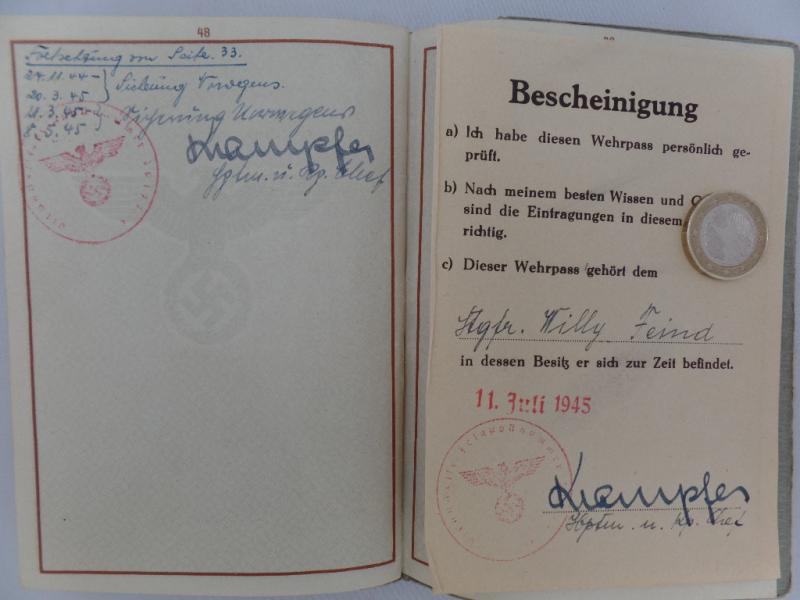 48
Fortsetzung von Seite 33.
24.11.44 –
20.3.45 } Sicherung Norwegens.
21.3.45 –
8.5.45 } Sicherung Norwegens
Krampfer
Hptm. u. Kp. Chef
Bescheinigung
a) Ich habe diesen Wehrpass persönlich ge-
prüft.
b) Nach meinem besten Wissen und
sind die Eintragungen in diesem
richtig.
c) Dieser Wehrpass gehört dem
Stgfr. Willy Feind
in dessen Besitz er sich zur Zeit befindet.
11. Juli 1945
Krampfer
Hptm. u. Kp. Chef